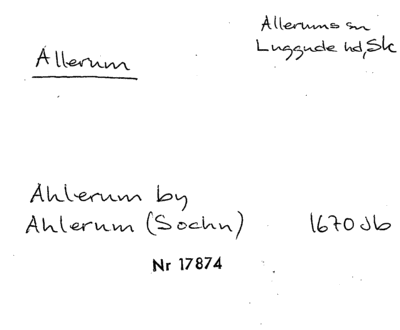 Allerum
Allerums sn
Luggude hd, Sk
Ahlerum by
Ahlerum (Sochn) 1670 Jb
Nr 17874